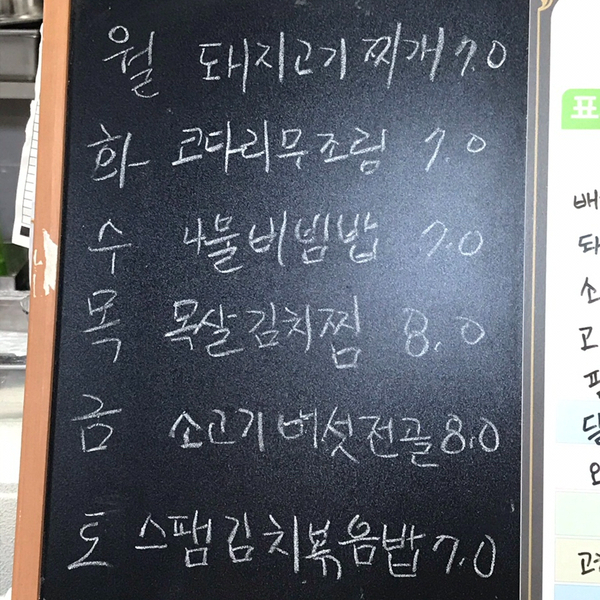 월 돼지고기 찌개 7.0
화 코다리무조림 7.0
수 나물비빔밥 7.0
목 목살김치찜 8.0
금 소고기버섯전골 8.0
토 스팸김치볶음밥 7.0
표
배
돼
소
고